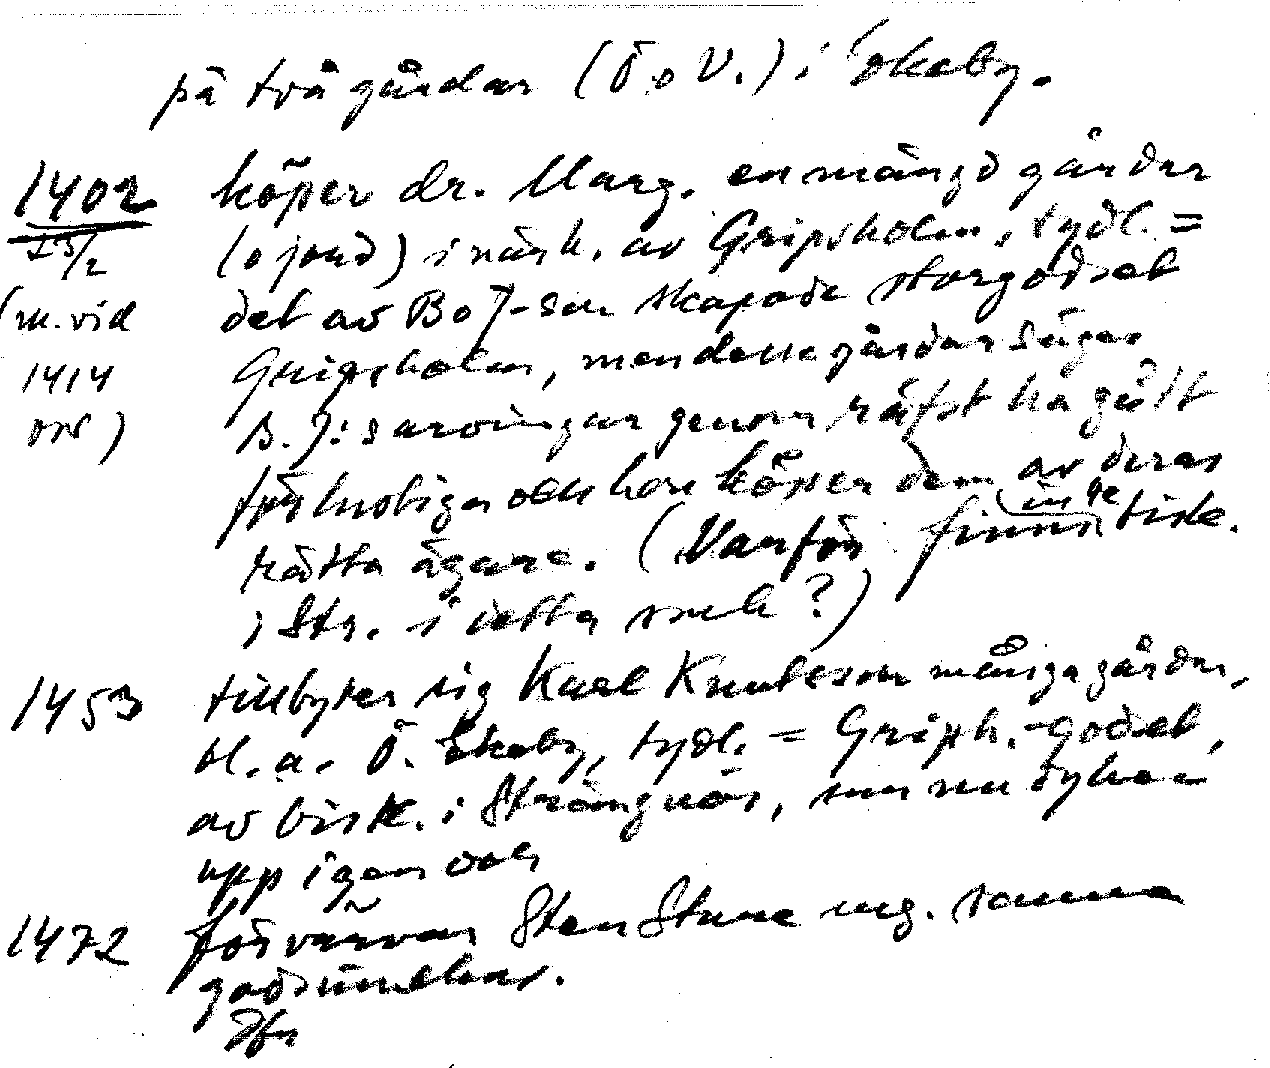 på två gårdar (Ö. o V.) i Ekeby.
1402 köper dr. Marg. en mängd gårdar
23/2 (o jord) i närh. av Gripsholm, tydl. =
(nr. vid det av Bo J-son skapade storgodset
1414 Gripsholm, men dessa gårdar säges
B. J:s arvingar genom räfst ha gått
förlustiga och hon köper dem av deras
rätta ägare. (Varför finns inte bisk.
i Str. i detta med?)
1453 tillbyter sig Karl Knutsson många gårdar,
bl.a. Ö. Ekeby, tydl. = Griph.-godset,
av bisk. i Strängnäs, som nu dyker
upp igen och
1472 förvärvar Sten Sture ung. samma
godsinnehav.
Jfr